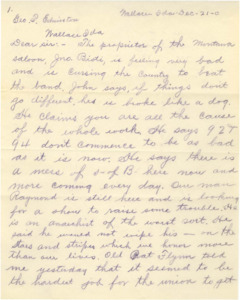 1.
Wallace Ida Dec-21-0
Geo. S. Edmiston
Wallace Ida
Dear sir:- The proprietor of the Montana
saloon, Joe Bids, is feeling very bad
and is cursing the County to beat
the band. John says, if things don't
go different, he is broke like a dog.
He claims you are all the cause
of the whole work. He says 92T
94 don't commence to be as bad
as it is now. He says there is
a mess of S-of-B here now and
more coming every day. Our man
Raymond is still here and is looking
for a show to raise some trouble. He
is an anarchist of the worst sort. He
said he would not wipe his — on the
stars and stripes which we honor more
than our lives. Old Pat Flynn told
me yesterday that it seemed to be
the hardest job for the union to get